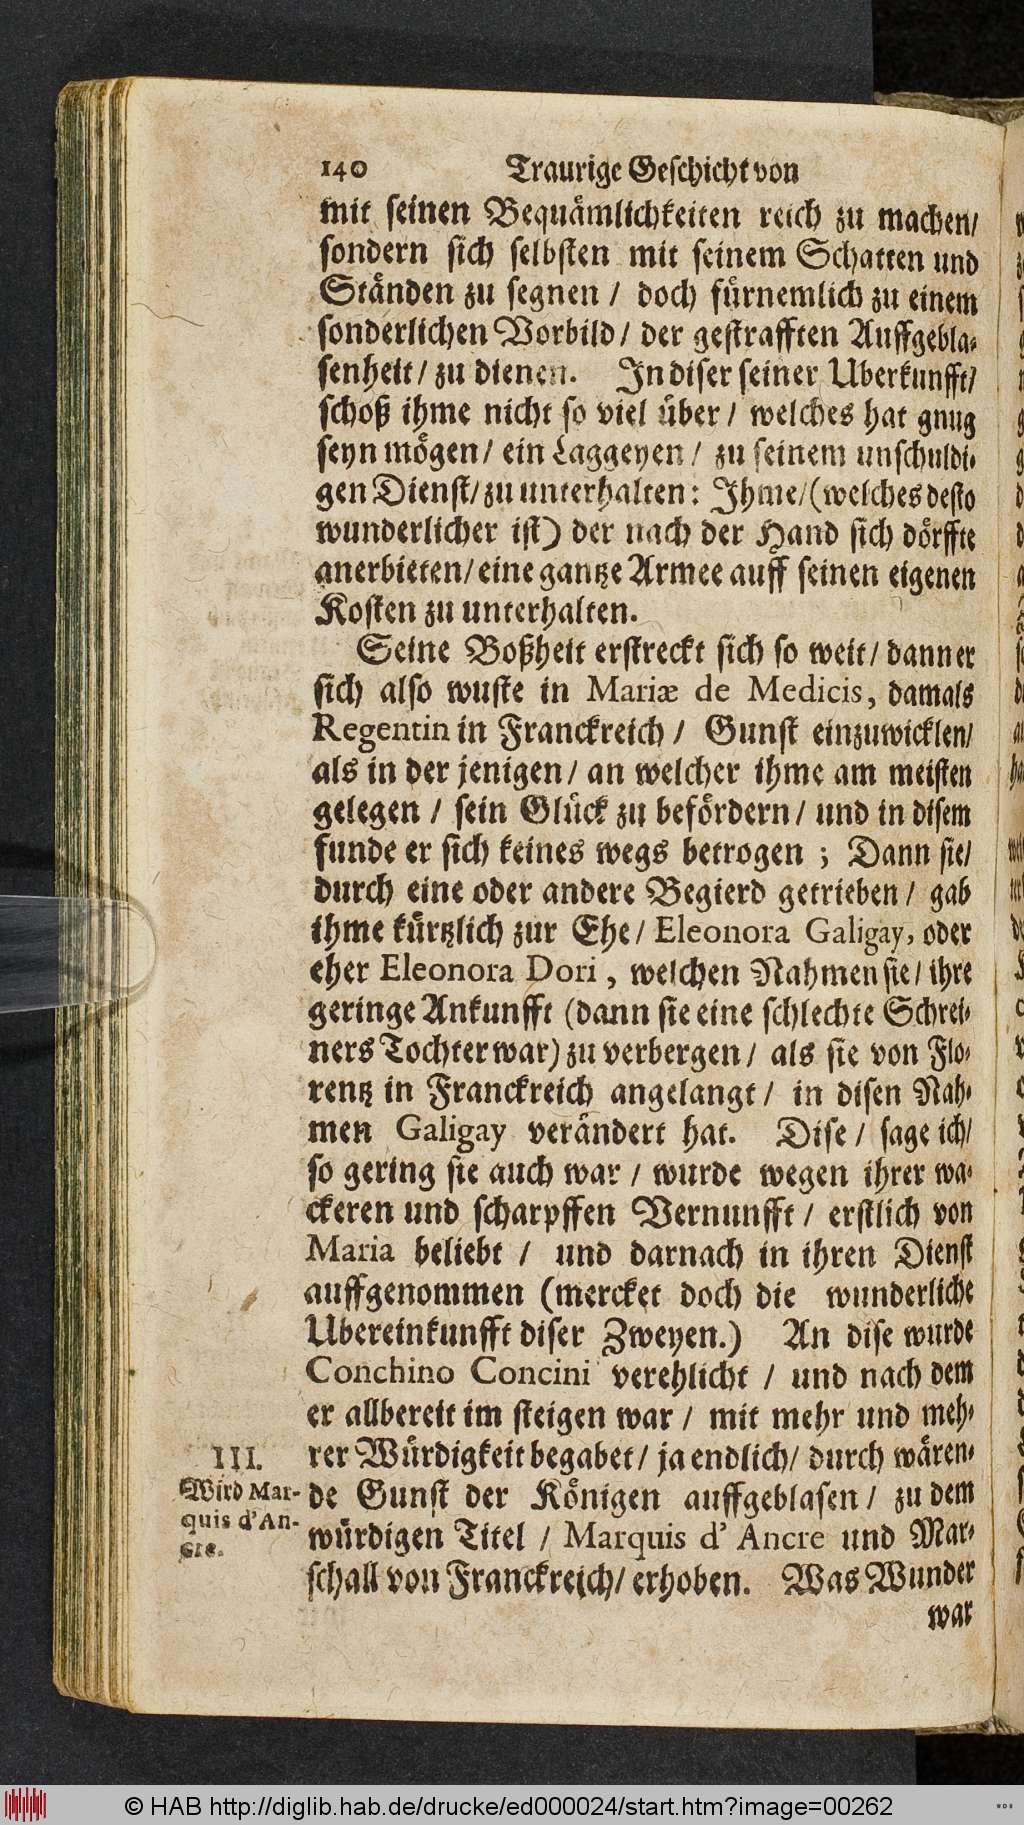 140 Traurige Geschicht von
mit seinen Bequämlichkeiten reich zu machen/
sondern sich selbsten mit seinem Schatten und
Ständen zu segnen / doch fürnemlich zu einem
sonderlichen Vorbild / der gestrafften Auffgebla-
senheit / zu dienen. In diser seiner Uberkunfft/
schoß ihme nicht so viel über / welches hat gnug
seyn mögen / ein Laggeyen / zu seinem unschuldi-
gen Dienst/ zu unterhalten: Ihme/ (welches desto
wunderlicher ist) der nach der Hand sich dörffte
anerbieten/ eine gantze Armee auff seinen eigenen
Kosten zu unterhalten.
Seine Boßheit erstreckt sich so weit / dann er
sich also wuste in Mariæ de Medicis, damals
Regentin in Franckreich / Gunst einzuwicklen/
als in der jenigen / an welcher ihme am meisten
gelegen / sein Glück zu befördern / und in disem
funde er sich keines wegs betrogen ; Dann sie/
durch eine oder andere Begierd getrieben / gab
ihme kürtzlich zur Ehe / Eleonora Galigay, oder
eher Eleonora Dori , welchen Nahmen sie / ihre
geringe Ankunfft (dann sie eine schlechte Schrei-
ners Tochter war) zu verbergen / als sie von Flo-
rentz in Franckreich angelangt / in disen Nah-
men Galigay verändert hat. Dise / sage ich/
so gering sie auch war / wurde wegen ihrer wa-
ckeren und scharpffen Vernunfft / erstlich von
Maria beliebt / und darnach in ihren Dienst
auffgenommen (mercket doch die wunderliche
Ubereinkunfft diser Zweyen.) An dise wurde
Conchino Concini verehlicht / und nach dem
er allbereit im steigen war / mit mehr und meh-
rer Würdigkeit begabet / ja endlich/ durch wären-
de Gunst der Königen auffgeblasen / zu dem
würdigen Titel / Marquis d' Ancre und Mar-
schall von Franckreich/ erhoben. Was Wunder
war
III.
Wird Mar-
quis d'An-
cre.
© HAB http://diglib.hab.de/drucke/ed000024/start.htm?image=00262